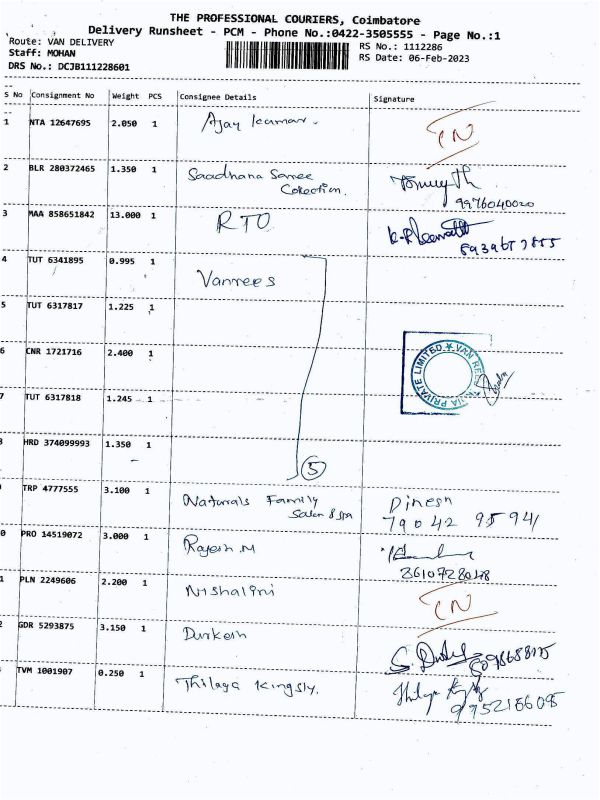 THE PROFESSIONAL COURIERS, Coimbatore
Delivery Runsheet - PCM - Phone No.:0422-3505555 - Page No.:1
Route: VAN DELIVERY
RS No.: 1112286
Staff: MOHAN
RS Date: 06-Feb-2023
DRS No.: DCJB111228601
S No Consignment No Weight PCS Consignee Details Signature
1 NTA 12647695 2.050 1 Ajay kumar. IN
2 BLR 280372465 1.350 1 Saadhana Saree
Collection.
9976040020
3 MAA 858651842 13.000 1 RTO
4 TUT 6341895 0.995 1 Vanrees
5 TUT 6317817 1.225 1
6 CNR 1721716 2.400 1
PRIVATE LIMITED ★ VAN REES
7 TUT 6317818 1.245 1
HRD 374099993 1.350 1
5
TRP 4777555 3.100 1 Naturals Family Dinesh
Salon & Spa 79042 95941
0 PRO 14519072 3.000 1 Rajesh.M
3610728048
1 PLN 2249606 2.200 1 Nishalini IN
2 GDR 5293875 3.150 1 Durkesh
TVM 1001907 0.250 1 Thilaga Kingsly.
9752156095